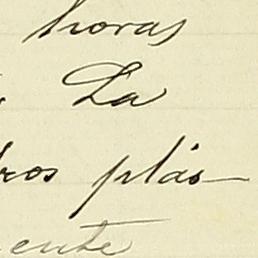 horas
La
ros plás-
ente